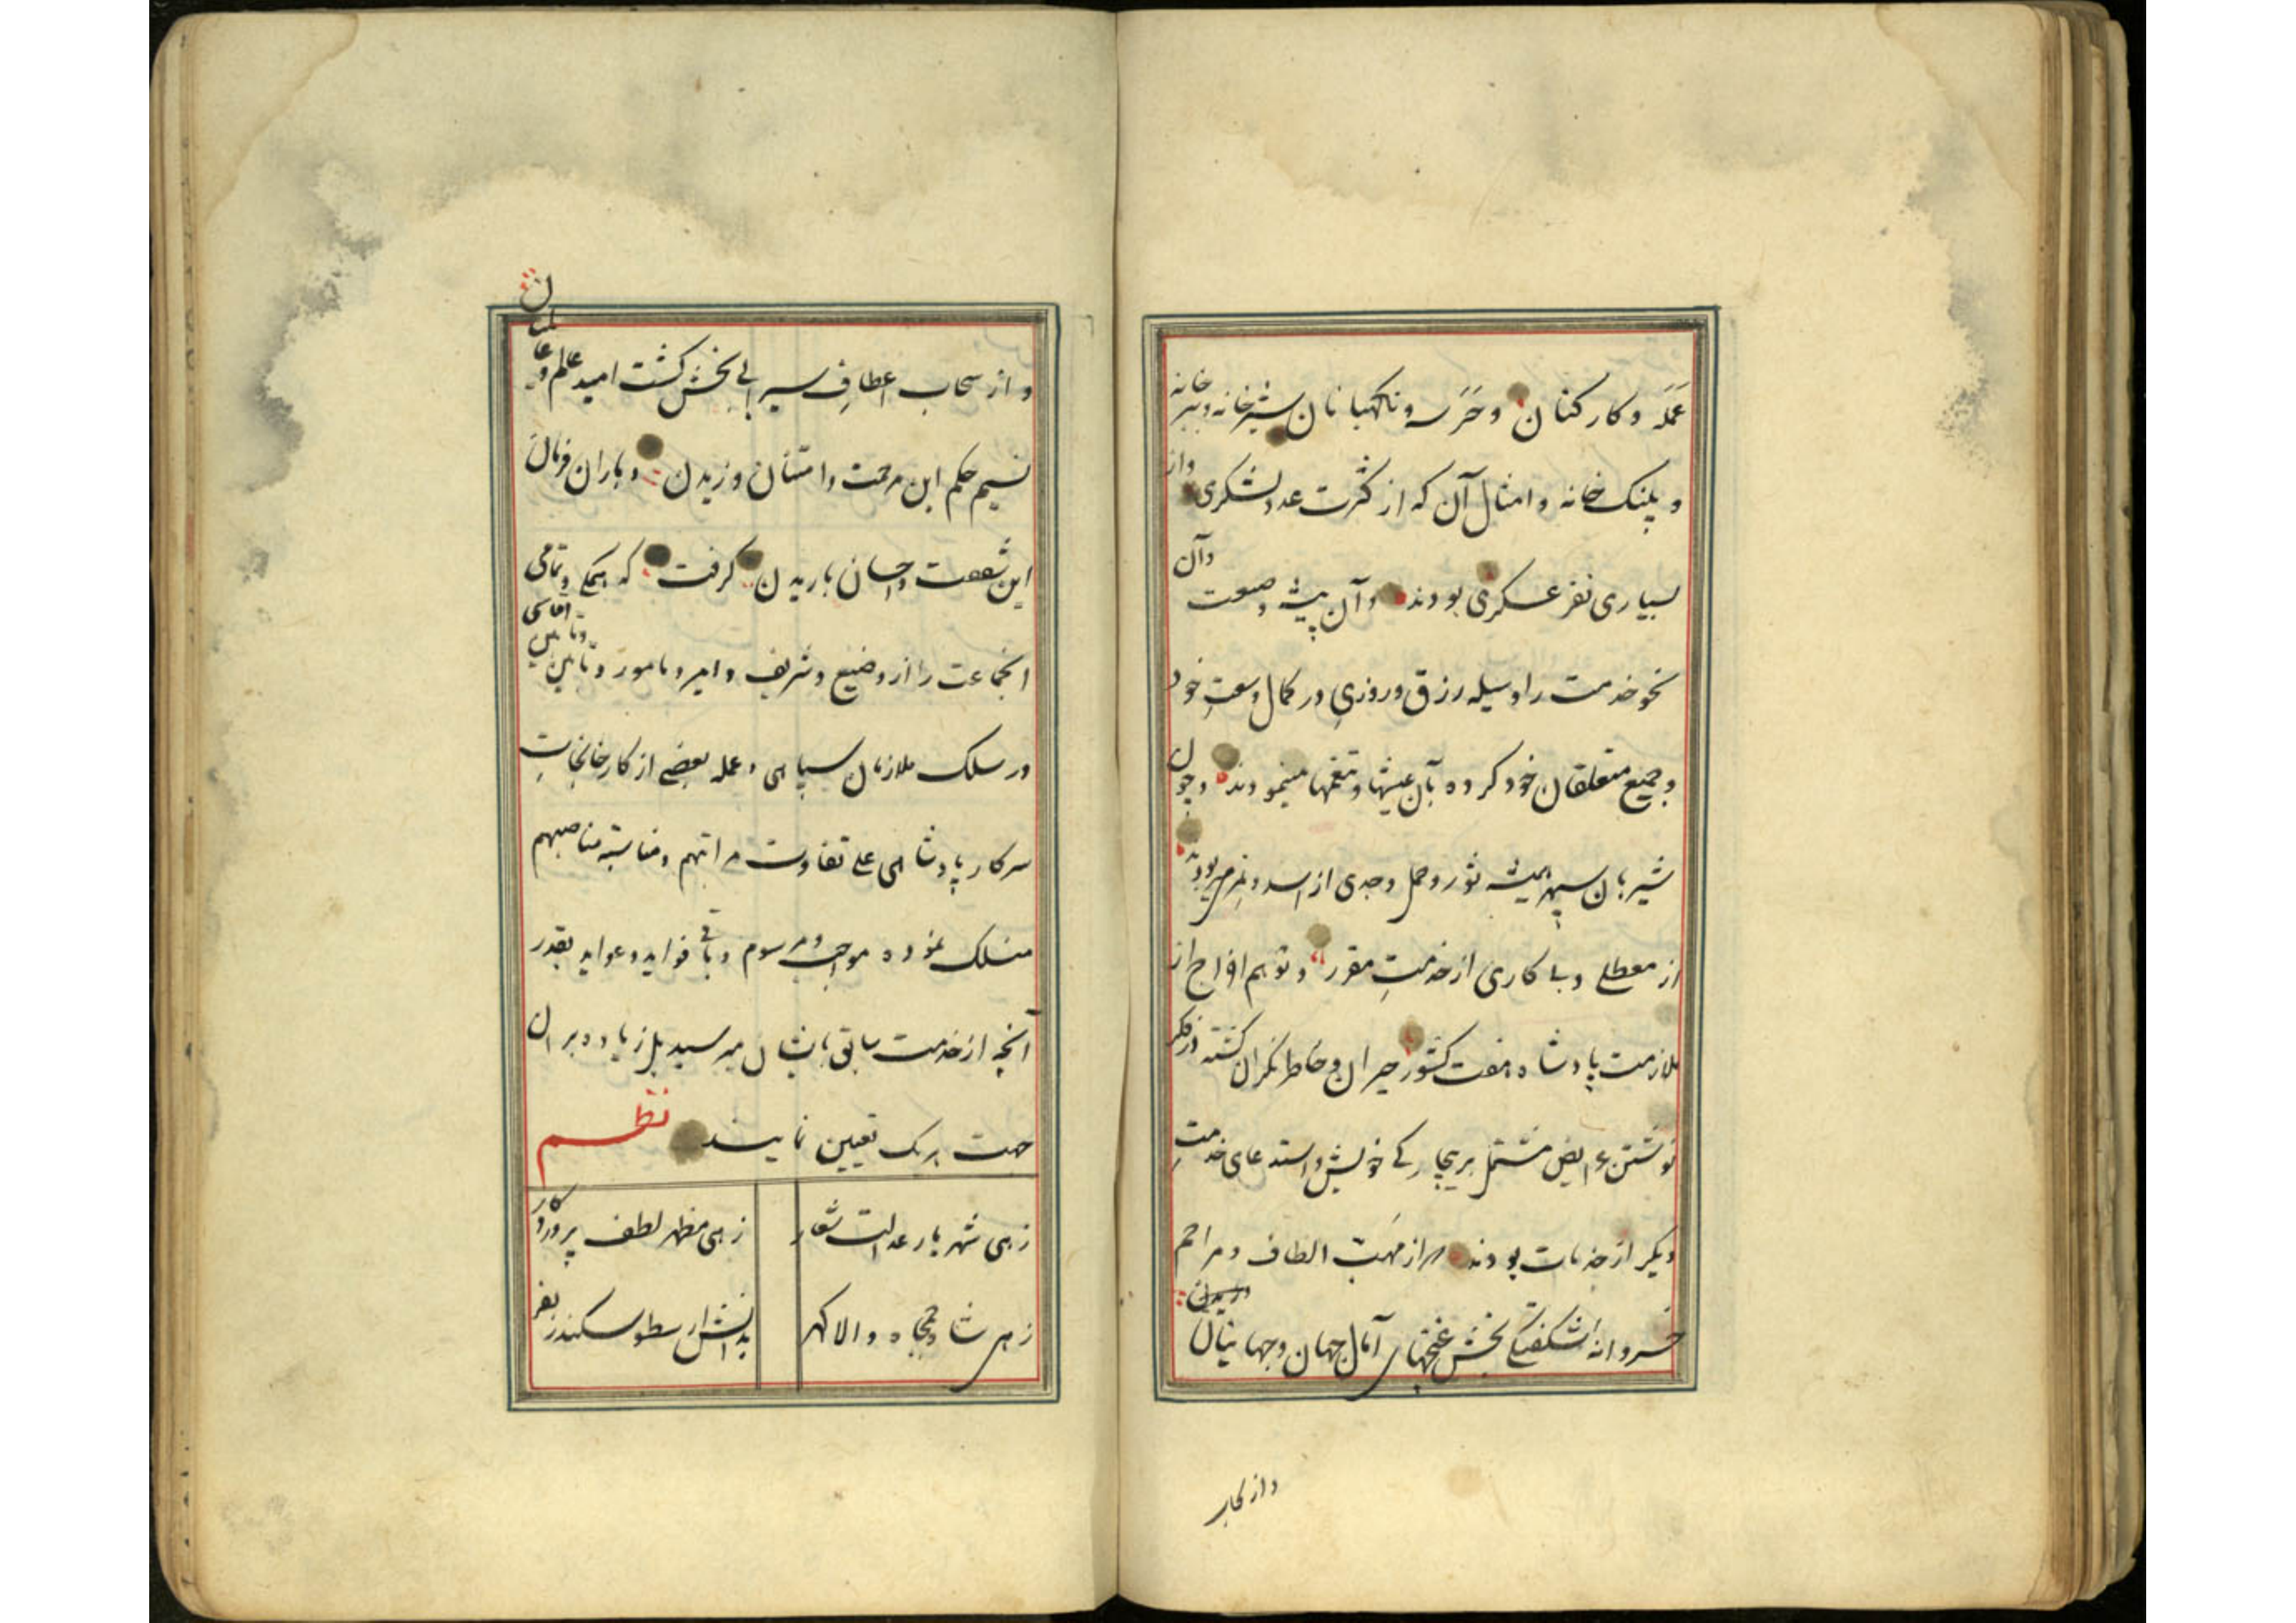 عَمَله و کارکنان و حَرَسه و ناکهبانان شیرخانه و ببرخانه
و پلنک خانه و امثال آن که از کثرت عدد لشکری واز
بسیاری نفر عسکری بودند وآن پیشه و صنعت وآن
نحو خدمت را وسیله رزق و روزیِ در کمال وسعتِ خود
و جمیع متعلقان خود کرده بآن عیشها و تنعمها مینمودند و چون
شیربان سپهر همیشه ثور و حمل و جدی از اسد و نمر میربودند
از معطلی و بی کاری از خدمتِ مقرر و توهم اخراج از
ملازمت پادشاه هفت کشور حیران و خاطر نکران کشته در فکر
نوشتن عرایض مشتمل بر بیچارکی خویش و استدعای خدمتِ
دیکر از خدمات بودند که از مَهَبّ الطاف و مراحم
خسروانه شکفتکی بخش غنچهای آمال جهان و جهانیان
واز سحاب
و از سحاب اعطافِ سیرابی بخش کشت امید عالم و عالمیان
نسیم حکم این مرحمت و امتنان وزیدن و باران فرمان
این شفقت و احسان باریدن کرفت که همکی و تمامی
انجماعت را از وضیع و شریف و امیر و مامور و تابین
در سلک ملازمان سپاهی و عمله بعضی از کارخانجاتِ
سرکار پادشاهی علی تفاوت مراتبهم و مناسبة مناصبهم
منسلک نموده مواجب و مرسوم و باقی فواید و عواید بقدر
آنچه از خدمت سابق بایشان میرسید بل زیاده بر آن
جهت هر یک تعیین نمایند نظم
زهی شهریار عدالت شعار زهی مظهر لطف پروردکار
زهی شاه جمجاه والا کهر بدانش ارسطو سکندر بفر